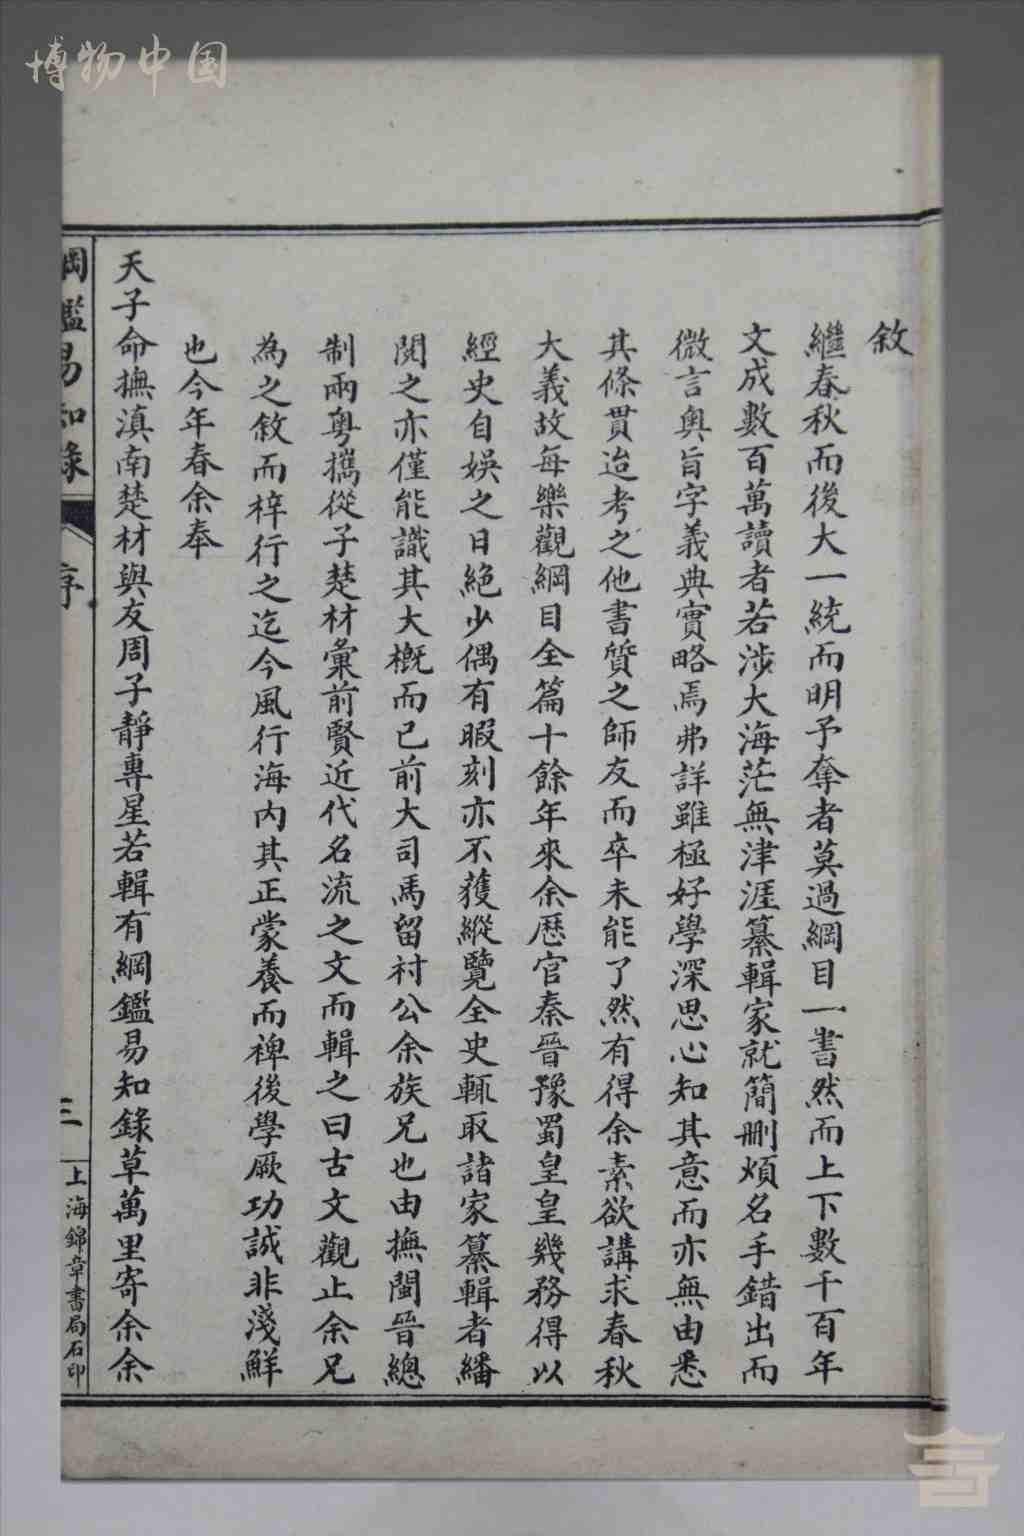 博物中国
敘
繼春秋而後大一統而明予奪者莫過綱目一書然而上下數千百年
文成數百萬讀者若涉大海茫無津涯纂輯家就簡刪煩名手錯出而
微言奧旨字義典實略焉弗詳雖極好學深思心知其意而亦無由悉
其條貫迨考之他書質之師友而卒未能了然有得余素欲講求春秋
大義故每樂觀綱目全篇十餘年來余歷官秦晉豫蜀皇皇幾務得以
經史自娛之日絕少偶有暇刻亦不獲縱覽全史輒取諸家纂輯者繙
閱之亦僅能識其大概而已前大司馬留村公余族兄也由撫閩晉總
制兩粵攜從子楚材彙前賢近代名流之文而輯之曰古文觀止余兄
為之敘而梓行之迄今風行海內其正蒙養而裨後學厥功誠非淺鮮
也今年春余奉
天子命撫滇南楚材與友周子靜專星若輯有綱鑑易知錄草萬里寄余余
綱鑑易知錄
序
三
上海錦章書局石印